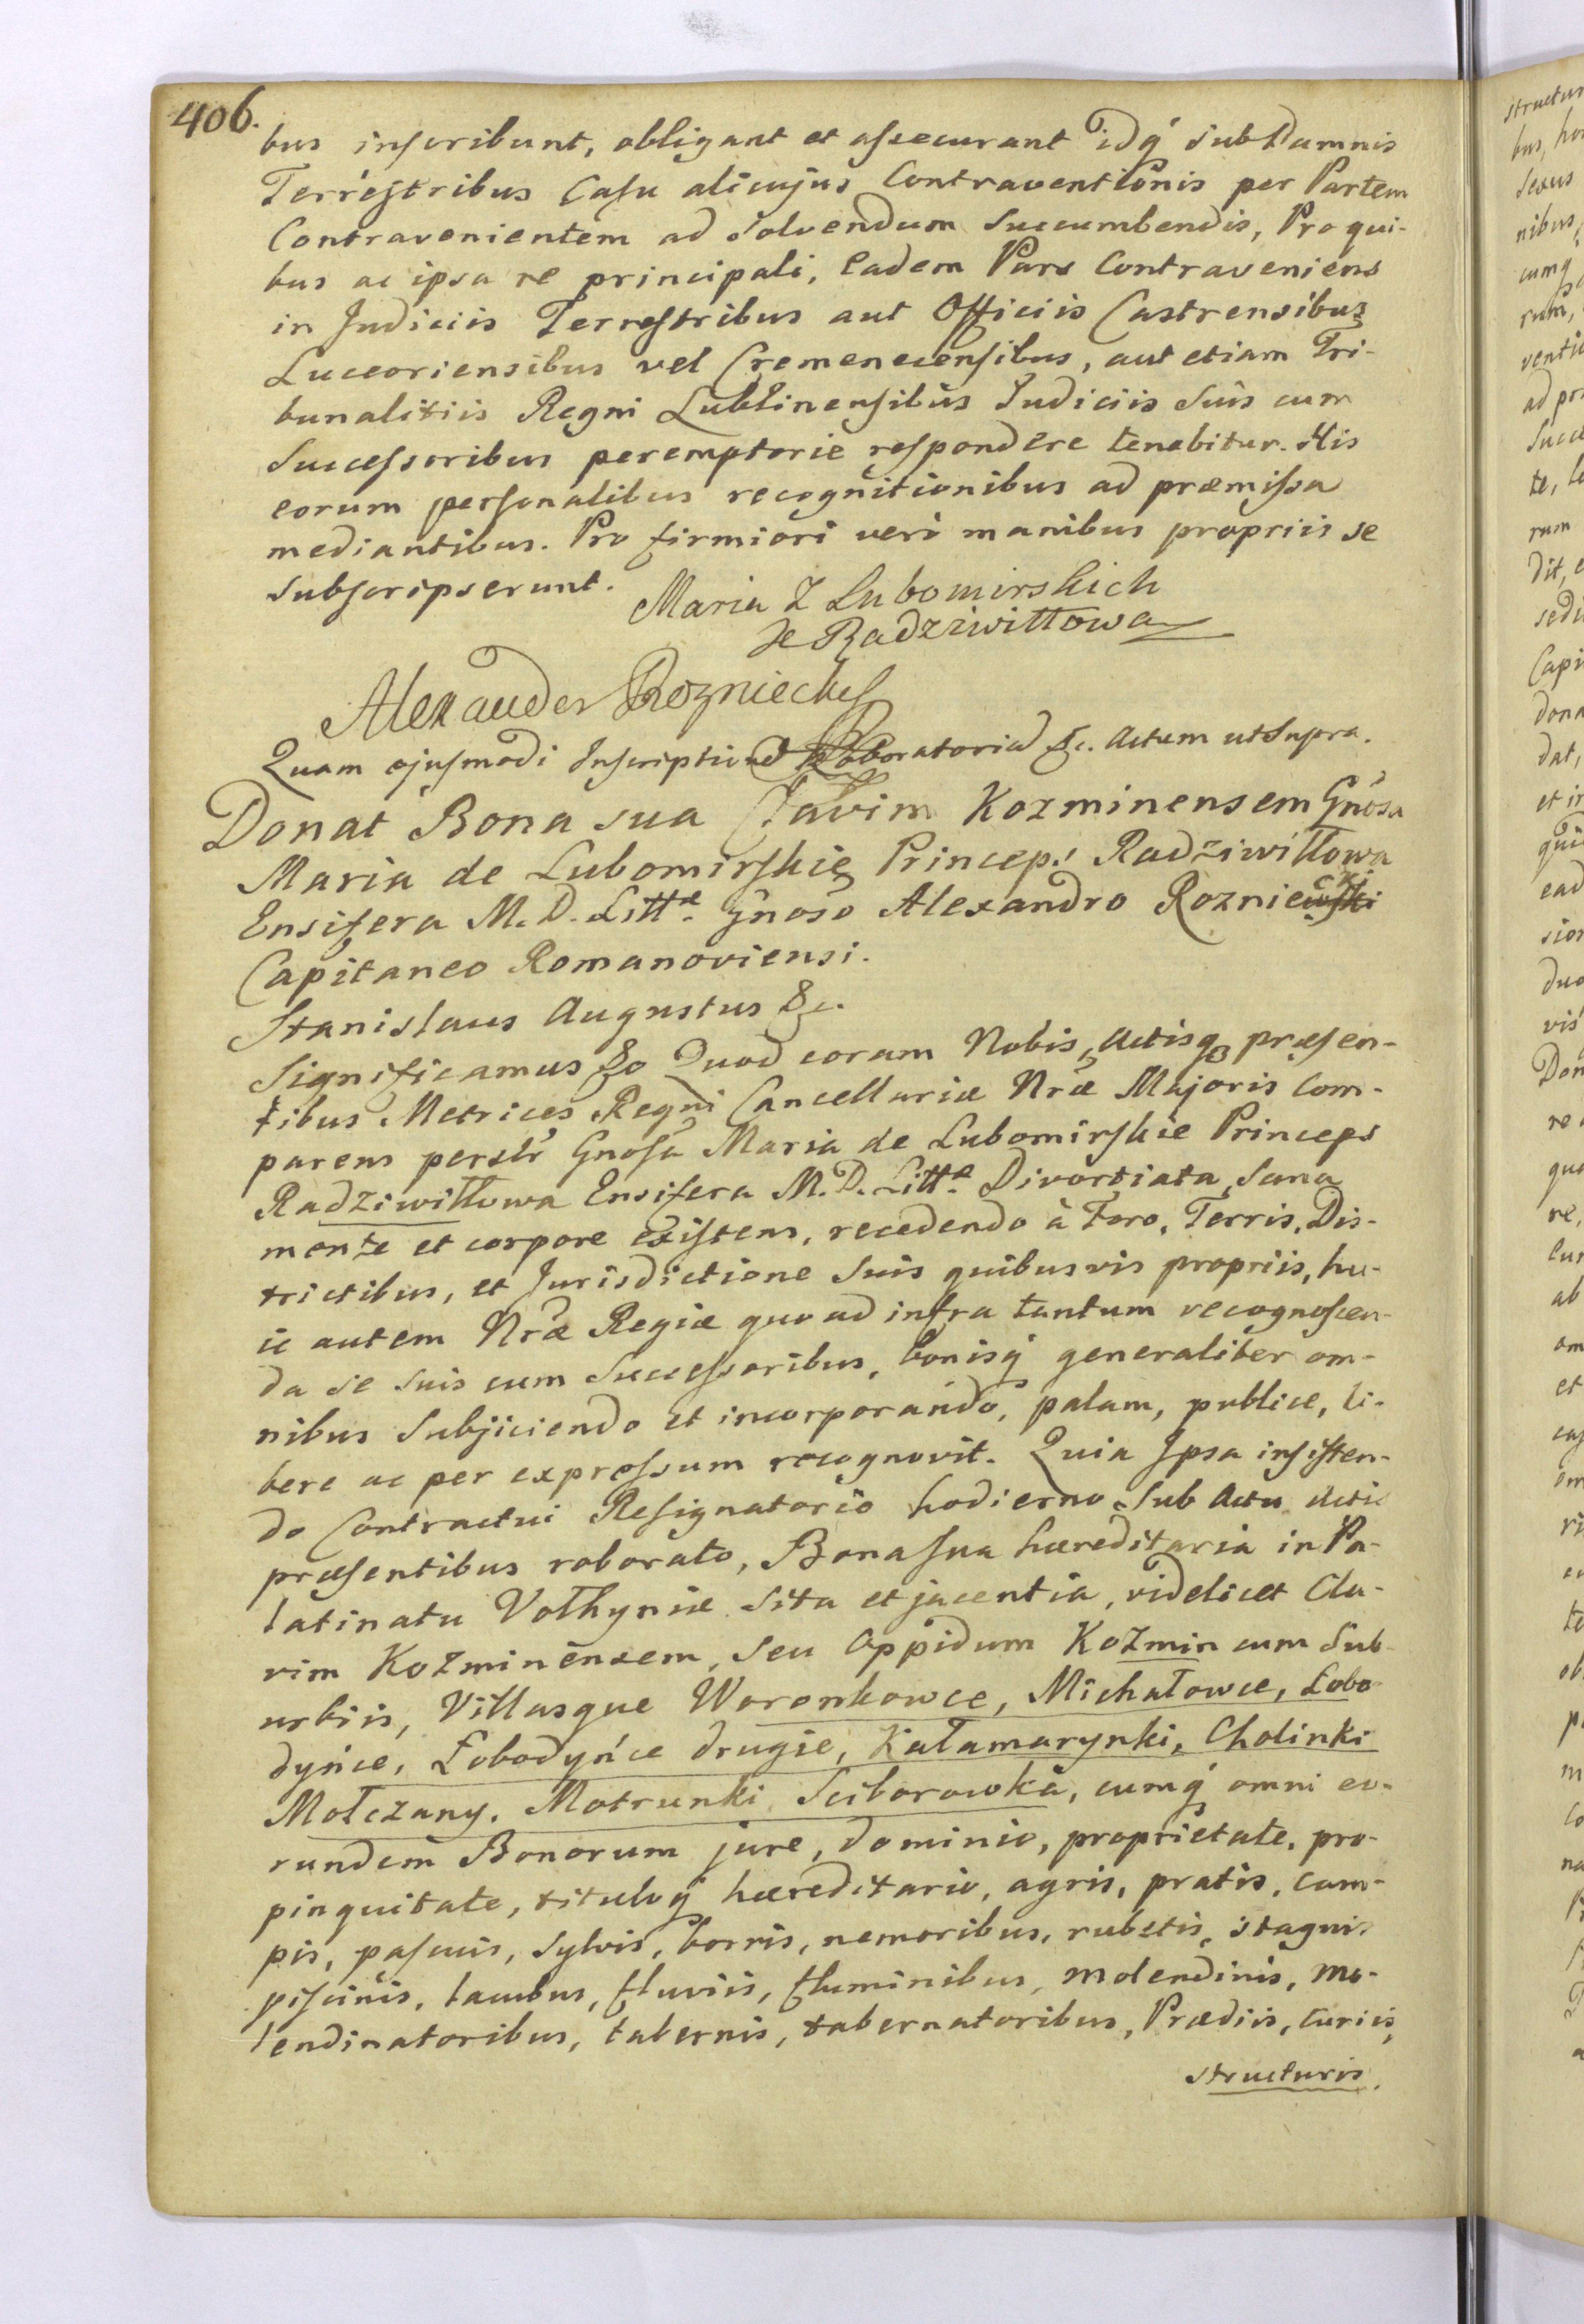 406.
bus inscribunt, obligant et assecurant idq́ sub Damnis
Terrestribus Casu alicujus Contraventionis per Partem
Contravenientem ad solvendum Succumbendis, Pro qui-
bus ac ipsa re principali, Eadem Pars Contraveniens
in Judiciis Terrestribus aut Officiis Castrensibus
Luceoriensibus vel Cremenecensibus, aut etiam Tri-
bunalitiis Regni Lublinensibus Judiciis Suis cum
Successoribus peremptorie respondere tenebitur. His
eorum personalibus recognitionibus ad præmissa
mediantibus. Pro firmiori veri manibus propriis se
subscripserunt.
Maria Z Lubomirskich
Xe Radziwiłłowa
Alexander Rozniecki
Quam ejusmodi Inscriptiũ Roboratoriã &c. Actum ut Supra.
Donat Bona sua Clavim Kozminensem Gñosa
Maria de Lubomirskie Princep: Radziwiłłowa
Ensifera M. D. Littæ Gñoso Alexandro Rozniecki
Capitaneo Romanoviensi.
Stanislaus Augustus &c.
Significamus &c Quod coram Nobis, Actisq præsen-
tibus Metrices Regni Cancellariæ Nræ Majoris Com-
parens persłr Gñosa Maria de Lubomirskie Princeps
Radziwiłłowa Ensifera M. D. Littæ Divortiata, Sana
mente et corpore existens, recedendo à Foro, Terris, Dis-
trictibus, et Jurisdictione Suis quibusvis propriis, hu-
ic autem Nræ Regiæ quo ad infra tantum recognoscen-
da se suis cum Successoribus, bonisq́ generaliter om-
nibus Subjiciendo et incorporando, palam, publice, li-
bere ac per expressum recognovit. Quia Ipsa insisten-
do Contractui Resignatorio hodierno Sub Actu Actis
præsentibus roborato, Bona sua hæreditaria in Pa-
latinatu Volhyniæ Sita et jacentia, videlicet Cla-
vim Kozminensem, Seu Oppidum Kozmin cum Sub-
urbiis, Villasque Woronkowce, Michałowce, Łobo-
dyńce, Łobodyńce drugie, Kałamarynki, Cholinki
Mołczany, Motrunki Sciborowka, cumq́ omni eo-
rundem Bonorum jure, dominio, proprietate, pro-
pinquitate, tituloq́ hæreditario, agris, pratis, cam-
pis, pascuis, sylvis, borris, nemoribus, rubetis, stagnis
piscinis, lacubus, fluviis, fluminibus, molendinis, mo-
lendinatoribus, tabernis, tabernatoribus, Prædiis, Curiis,
structuris.